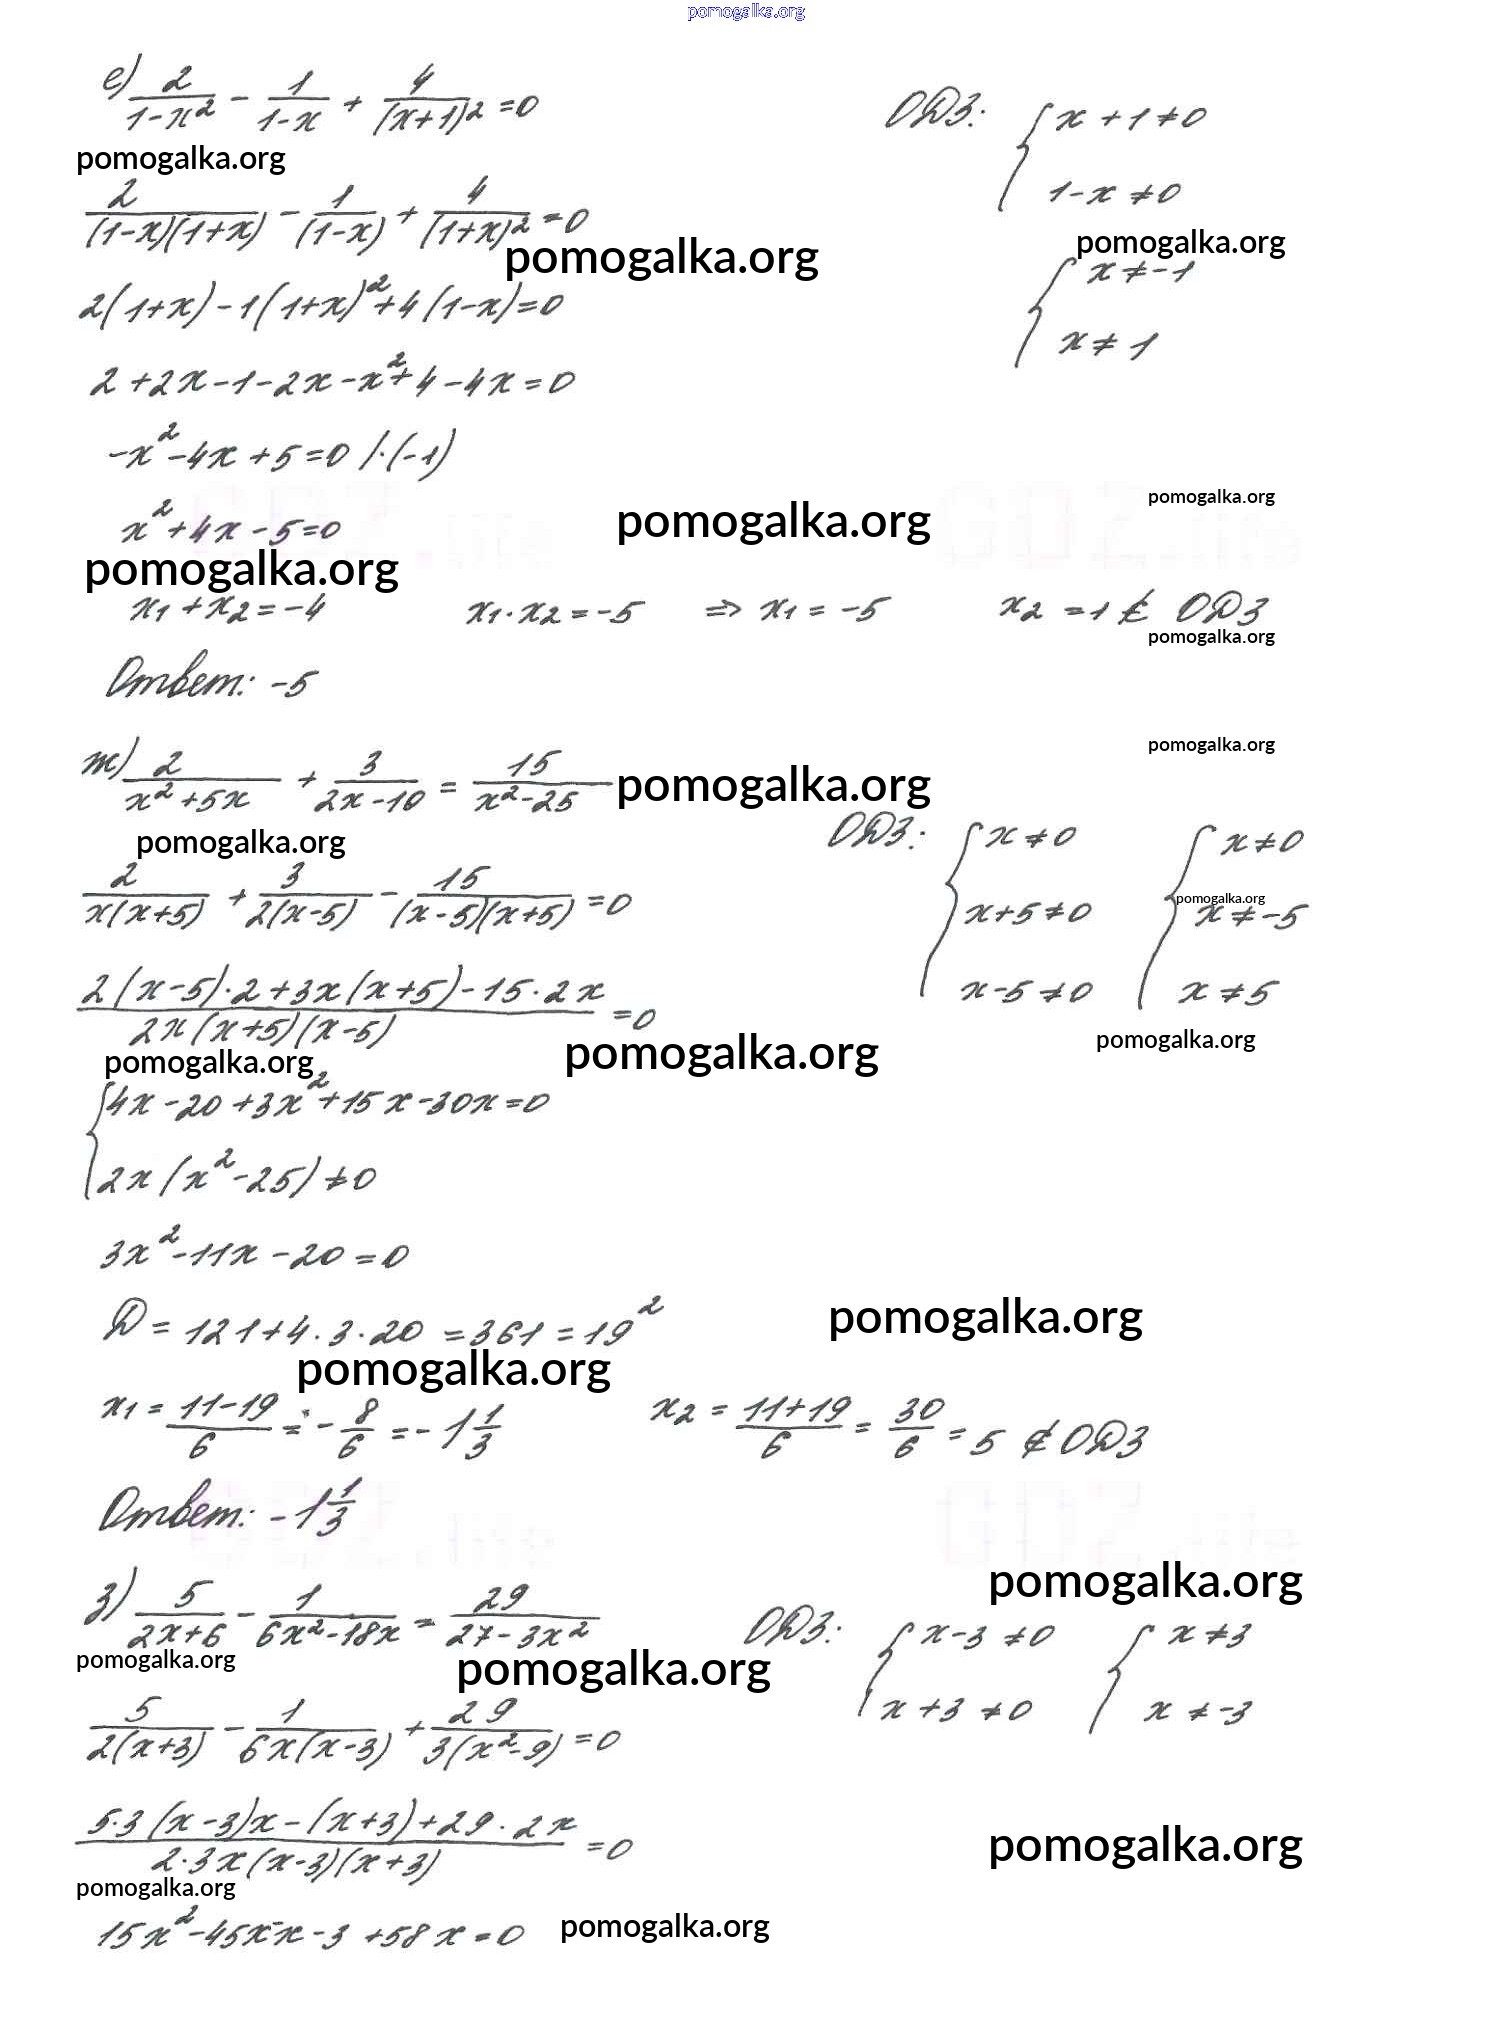 pomogalka.org
е) 2/(1-x²) - 1/(1-x) + 4/(x+1)² = 0
ОДЗ: { x+1≠0
1-x≠0
pomogalka.org
2/((1-x)(1+x)) - 1/(1-x) + 4/(1+x)² = 0
pomogalka.org
pomogalka.org
{ x≠-1
x≠1
2(1+x)-1(1+x)²+4(1-x)=0
2+2x-1-2x-x²+4-4x=0
-x²-4x+5=0 /·(-1)
pomogalka.org
x²+4x-5=0
pomogalka.org
pomogalka.org
x₁+x₂=-4 x₁·x₂=-5 ⇒ x₁=-5 x₂=1 ∉ ОДЗ
pomogalka.org
Ответ: -5
pomogalka.org
ж) 2/(x²+5x) + 3/(2x-10) = 15/(x²-25)
pomogalka.org
pomogalka.org
ОДЗ: { x≠0 { x≠0
x+5≠0 x≠-5
x-5≠0 x≠5
pomogalka.org
2/(x(x+5)) + 3/(2(x-5)) - 15/((x-5)(x+5)) = 0
(2(x-5)·2+3x(x+5)-15·2x)/(2x(x+5)(x-5)) = 0
pomogalka.org
pomogalka.org
pomogalka.org
{ 4x-20+3x²+15x-30x=0
2x(x²-25)≠0
3x²-11x-20=0
D=121+4·3·20=361=19²
pomogalka.org
pomogalka.org
x₁=(11-19)/6=-8/6=-1 1/3 x₂=(11+19)/6=30/6=5 ∉ ОДЗ
Ответ: -1 1/3
pomogalka.org
з) 5/(2x+6) - 1/(6x²-18x) = 29/(27-3x²)
ОДЗ: { x-3≠0 { x≠3
x+3≠0 x≠-3
pomogalka.org
pomogalka.org
5/(2(x+3)) - 1/(6x(x-3)) + 29/(3(x²-9)) = 0
(5·3(x-3)x-(x+3)+29·2x)/(2·3x(x-3)(x+3)) = 0
pomogalka.org
pomogalka.org
15x²-45x-x-3+58x=0
pomogalka.org